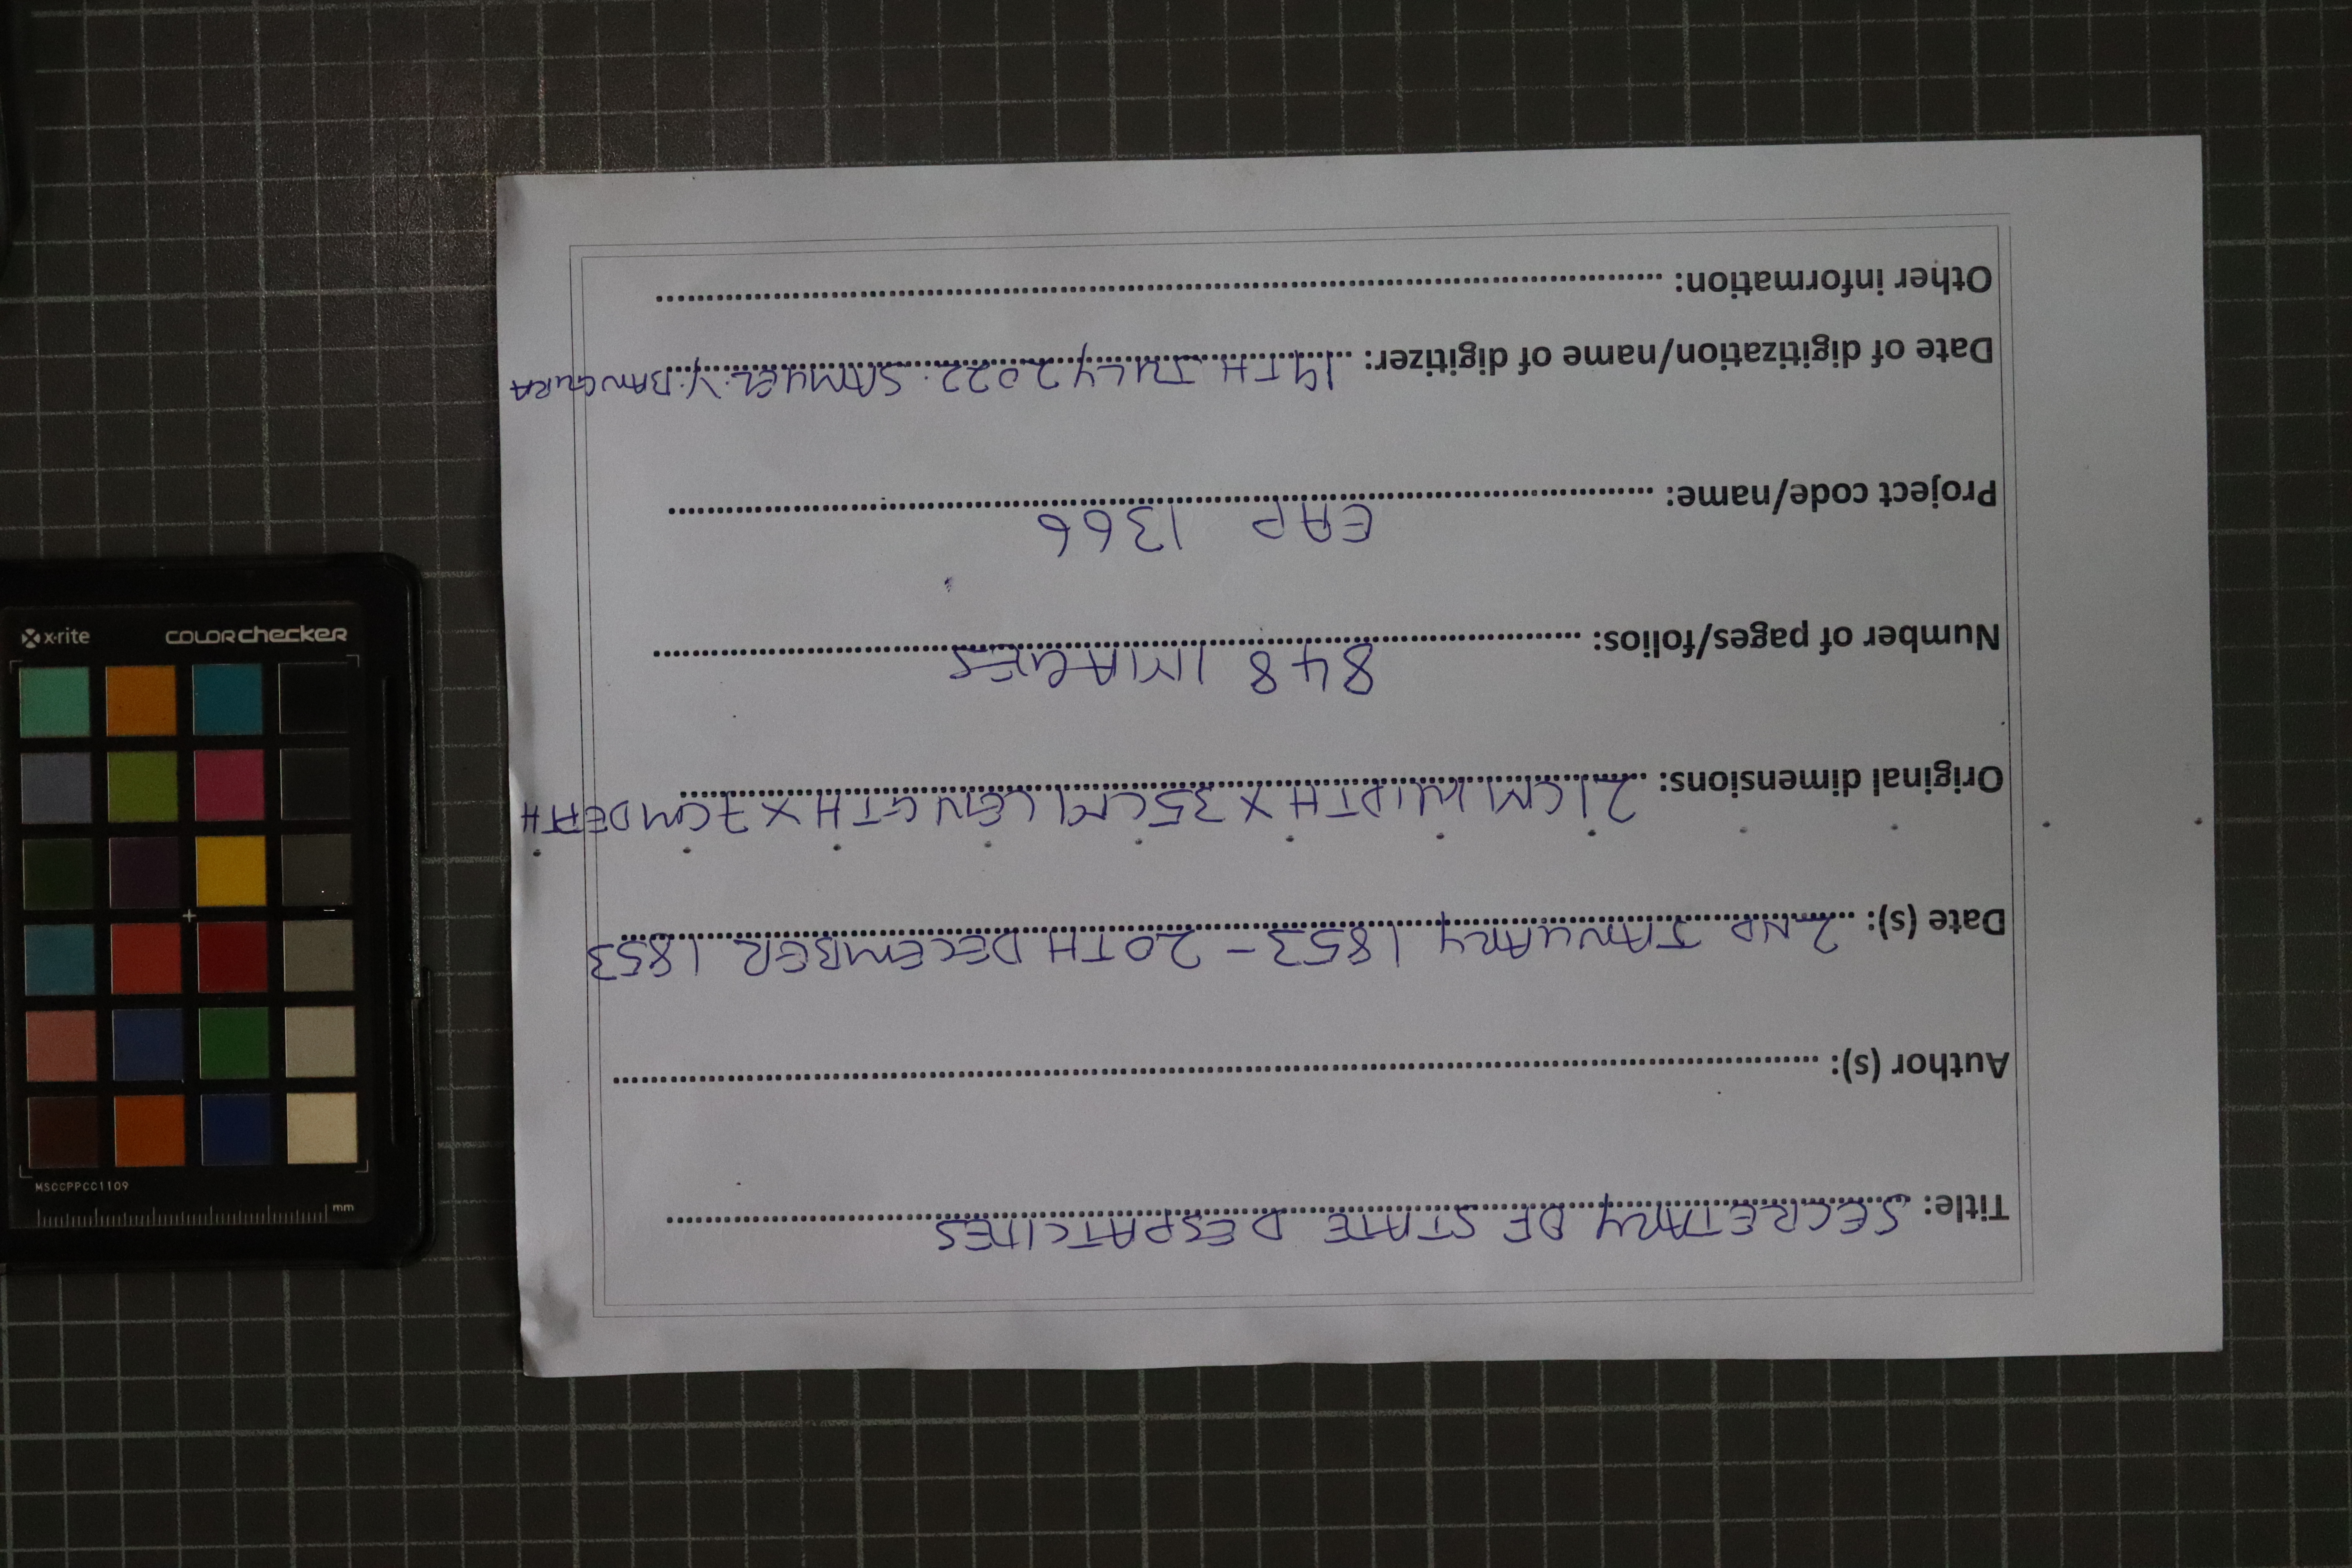 Title: SECRETARY OF STATE DESPATCHES
Author (s): ........................................
Date (s): 2ND JANUARY 1853 - 20TH DECEMBER 1853
Original dimensions: 21CM WIDTH X 35CM LENGTH X 7CM DEPTH
Number of pages/folios: 848 IMAGES
Project code/name: EAP 1366
Date of digitization/name of digitizer: 19TH JULY 2022. SAMUEL. Y. BANGURA
Other information: ........................................
x-rite colorchecker
MSCCPPCC1109
mm